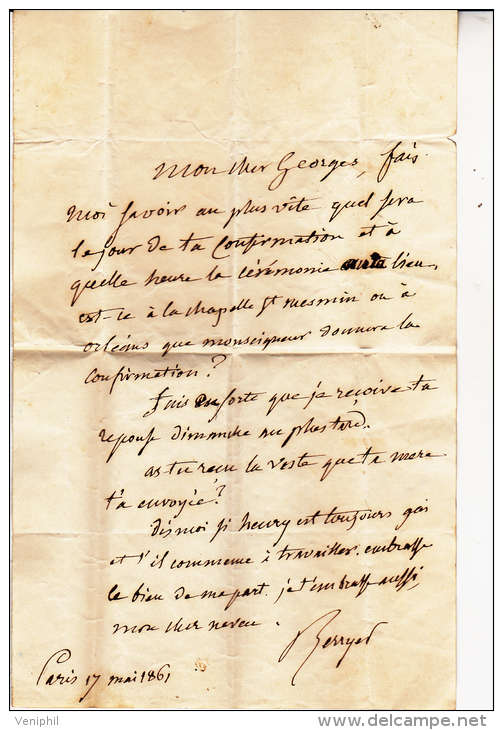 Mon cher Georges, fais
moi savoir au plus vîte quel sera
le jour de ta Confirmation et à
quelle heure la cérémonie aura lieu,
est-ce à la chapelle St mesmin ou à
orléans que monseigneur donnera la
Confirmation?
fais en sorte que je reçoive ta
reponse dimanche au plus tard.
as tu recu la veste que ta mere
t'a envoyée?
dis moi si henry est toujours gai
et s'il commence à travailler. embrasse
le bien de ma part. je t'embrasse aussi,
mon cher neveu.
Berryer
Paris 17 mai 1861
Veniphil
www.delcampe.net